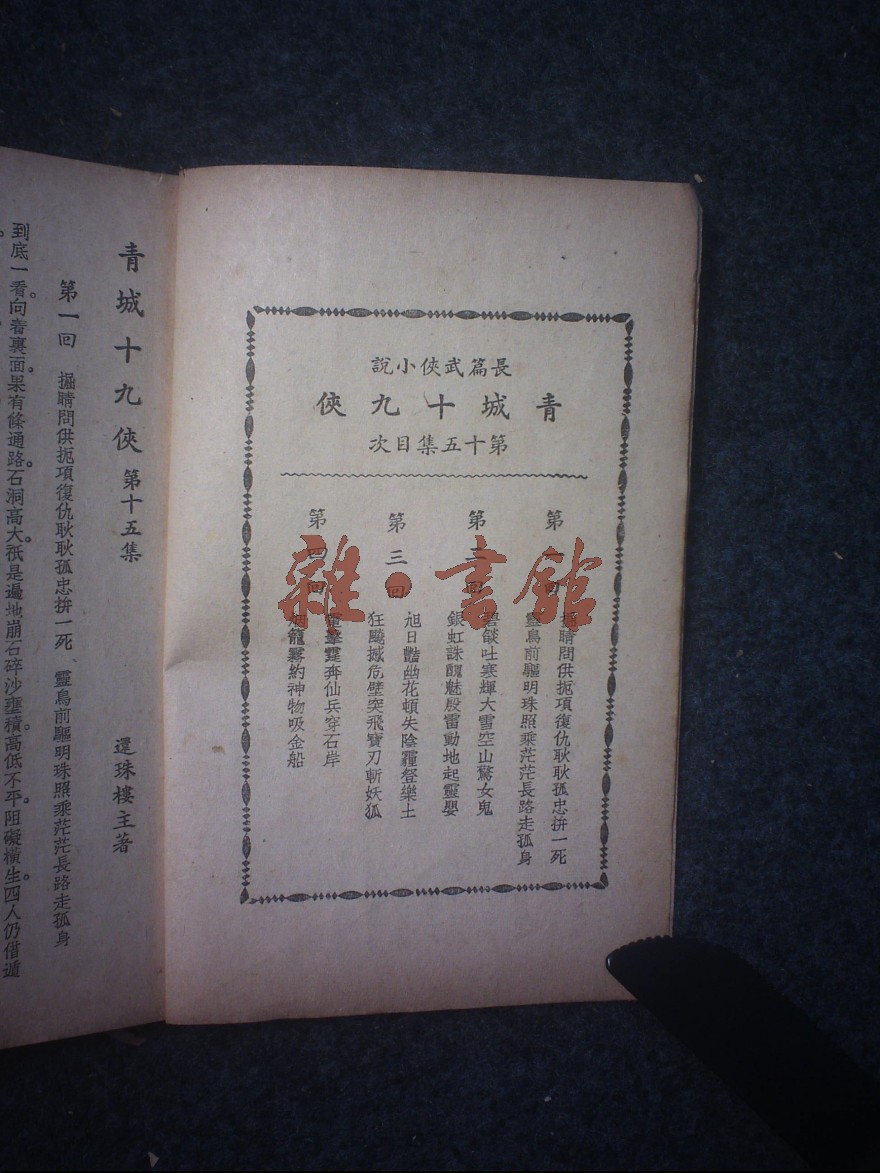 長篇武俠小說
青城十九俠
第十五集目次
第一回
掘睛問供扼項復仇耿耿孤忠拚一死
靈鳥前驅明珠照乘茫茫長路走孤身
第二回
碧燄吐寒輝大雪空山驚女鬼
銀虹誅醜魅殷雷動地起靈嬰
第三回
旭日豔幽花頓失陰霾登樂土
狂飈撼危壁突飛寶刃斬妖狐
第四回
奔仙兵穿石岸
烟籠霧約神物吸金船
雜·書館
青城十九俠 第十五集
還珠樓主著
第一回 掘睛問供扼項復仇耿耿孤忠拚一死 靈鳥前驅明珠照乘茫茫長路走孤身
到底一看。向着裏面。果有條通路。石洞高大。祇是遍地崩石碎沙壅積。高低不平。阻礙橫生。四人仍借遁